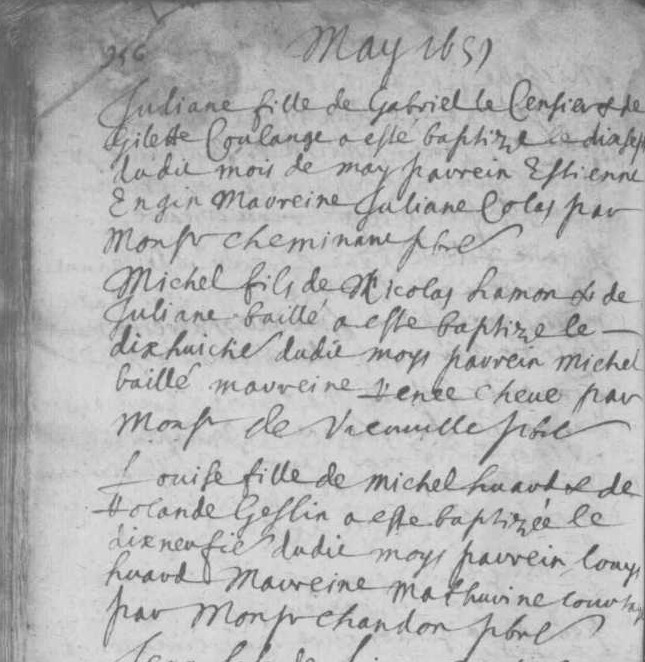 956 May 1651
Juliane fille de Gabriel le Censier & de
Gilette Coulange a esté baptize le dixsept
dudit mois de may parrein Estienne
Engin Marreine Juliane Colas par
Monsr cheminant pbre
Michel fils de Nicolas hamon & de
Juliane baillé a este baptize le
dixhuictie dudit moys parrein Michel
baillé marreine renee cheue par
Monsr de Vieuuille pbre
Louise fille de michel huard & de
Yolande Geslin a este baptizée le
dixneufie dudit moys parrein louys
huard Marreine Mathurine
par Monsr chandon pbre